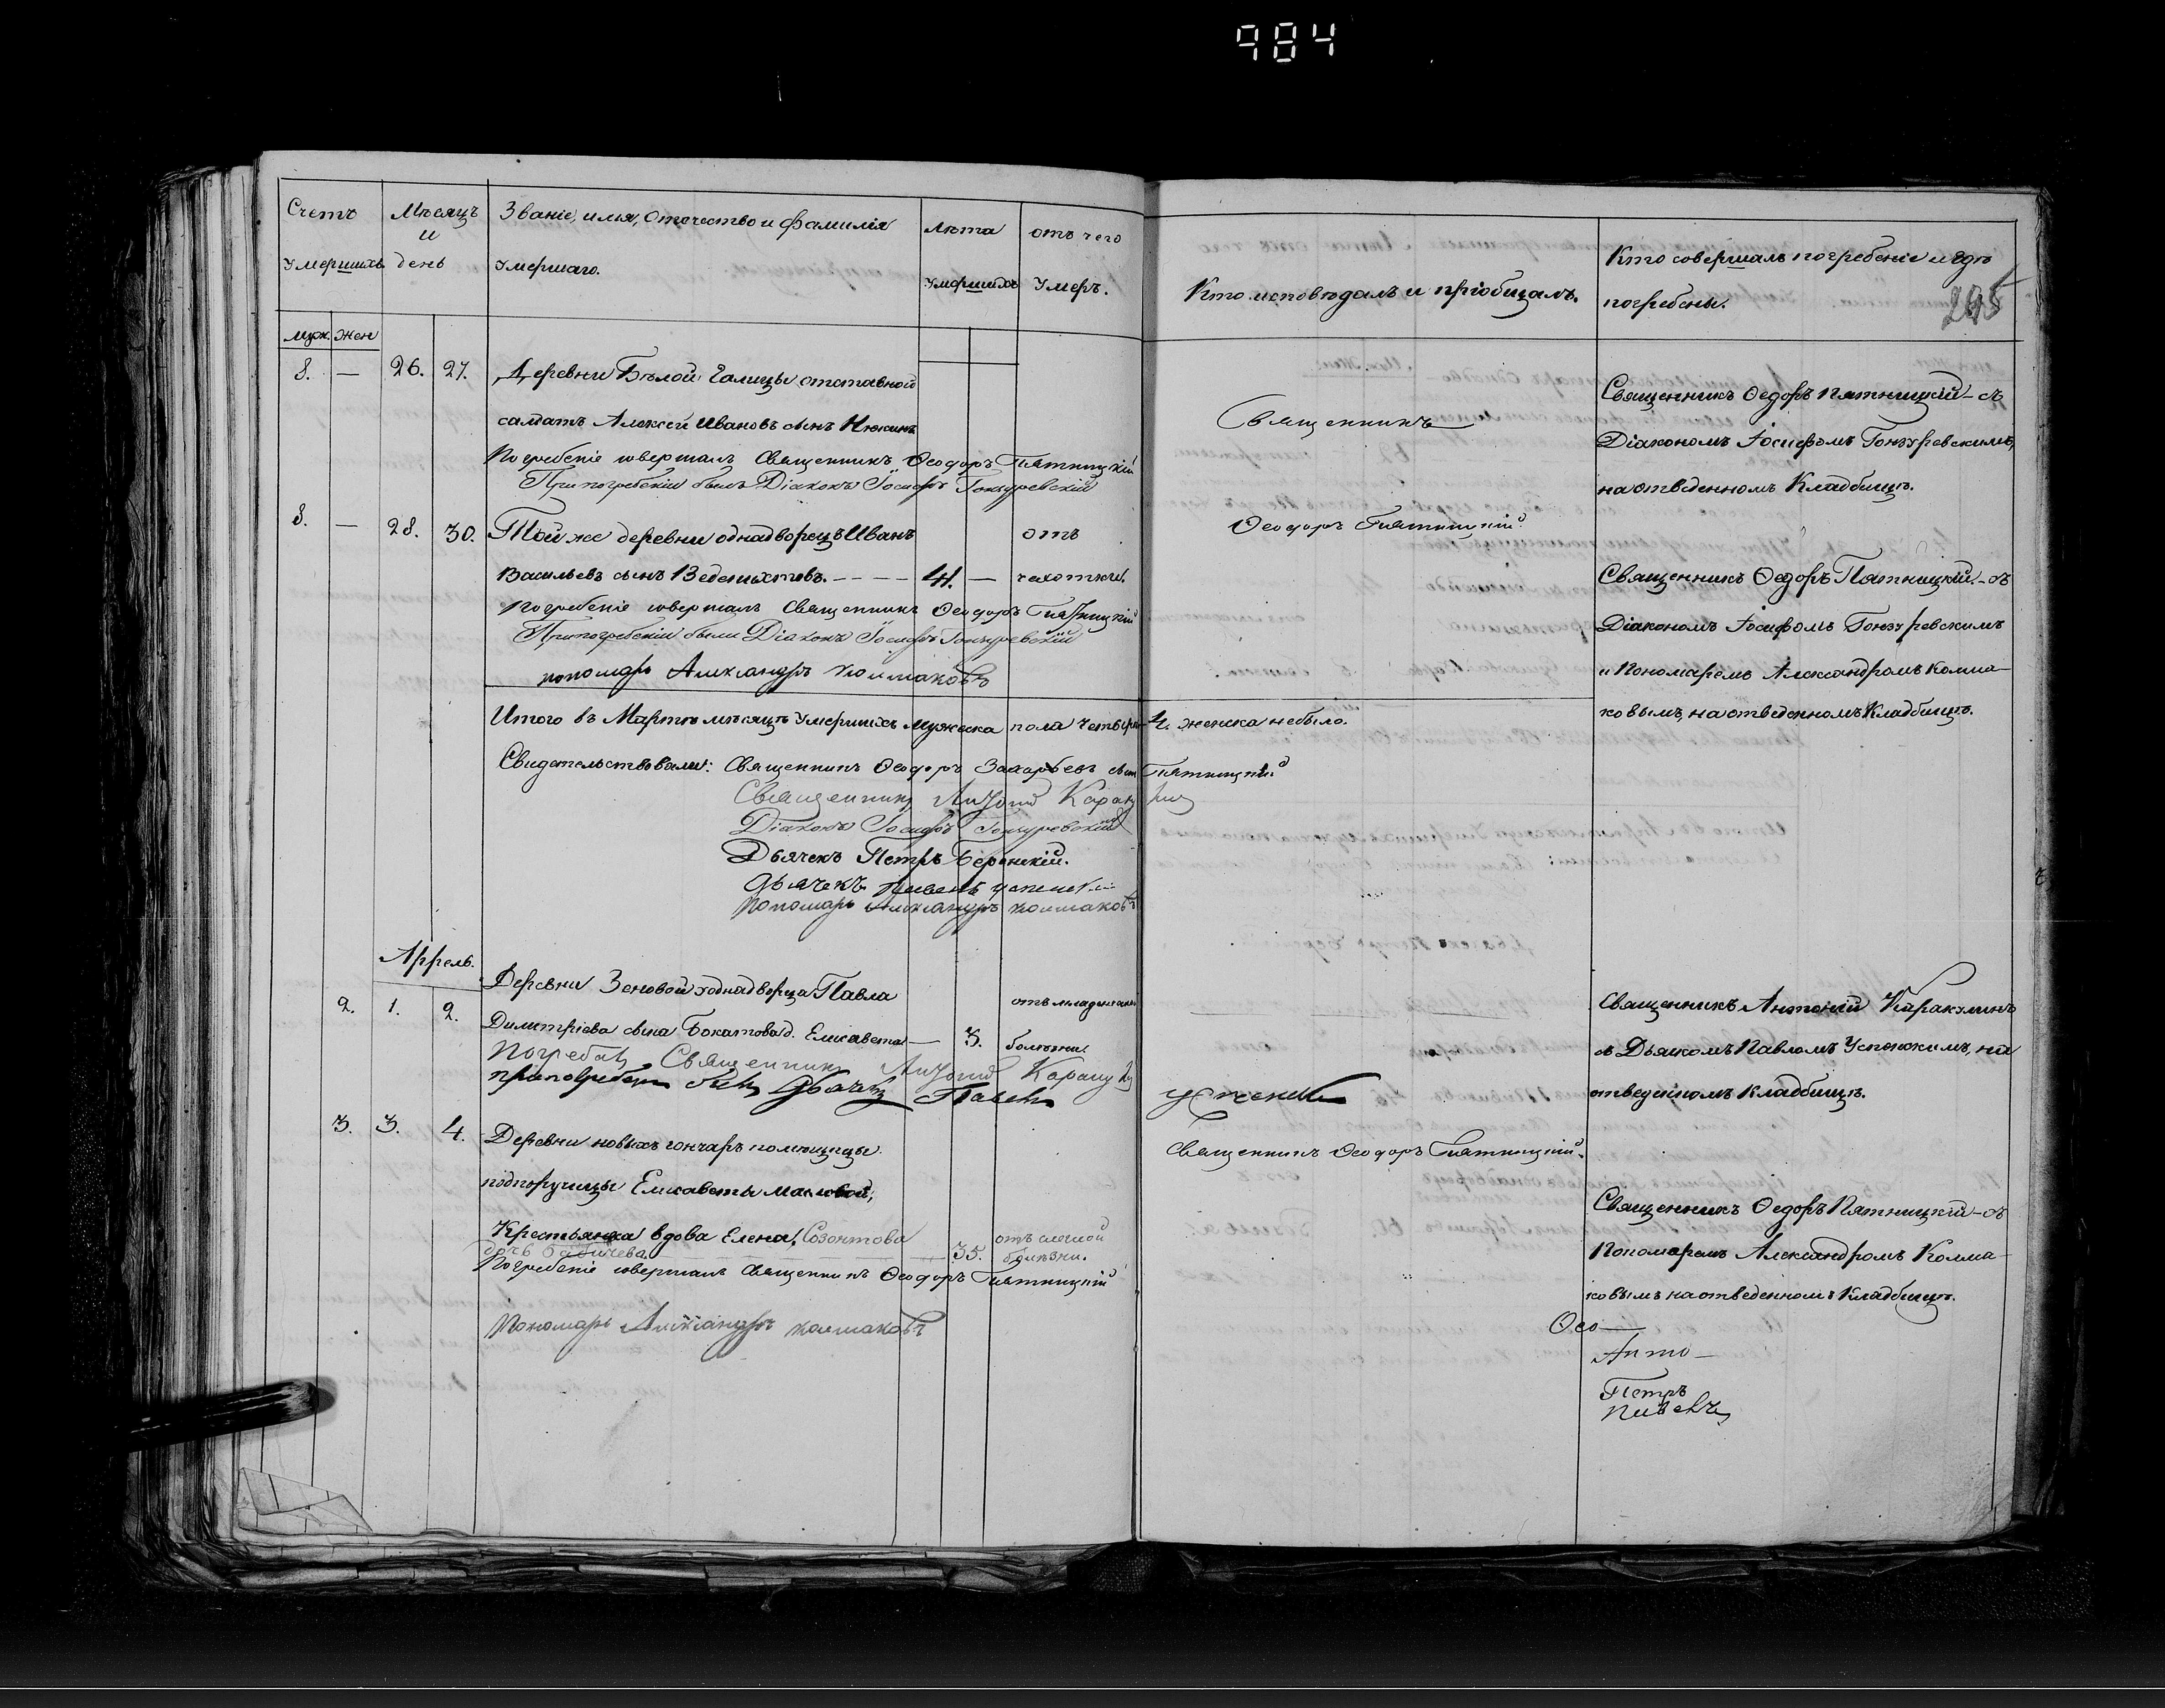 984
Счетъ
Умершихъ
Мѣсяцъ
и
день
Званіе, имя, отечество и фамилія
Умершаго.
Лѣта
Умершихъ
отъ чего
Умеръ.
Кто исповѣдалъ и пріобщалъ.
Кто совершалъ погребеніе и гдѣ
погребены.
245
муж. жен
8. — 26. 27. Деревни Бѣлой Галицы отставной
салдатъ Алексей Ивановъ сынъ
Погребеніе совершалъ Священникъ Ѳеодоръ Пятницкій
При погребеніи былъ Діаконъ Іосифъ Гонзуревскій
Священникъ
Ѳеодоръ Пятницкій
Священникъ Ѳедоръ Пятницкій – съ
Діакономъ Іосифомъ Гонзуревскимъ,
на отведенномъ Кладбищѣ.
8. — 28. 30. Той же деревни однадворецъ Иванъ
Васильевъ сынъ 41. — отъ
чехотки.
Погребеніе совершалъ Священникъ Ѳеодоръ Пятницкій
При погребеніи были Діаконъ Іосифъ Гонзуревскій
пономарь Александръ Колмаковъ
Священникъ Ѳедоръ Пятницкій – съ
Діакономъ Іосифомъ Гонзуревскимъ
и Пономаремъ Александромъ Колма-
ковымъ, на отведенномъ Кладбищѣ.
Итого въ Мартѣ мѣсяцѣ Умершихъ мужеска пола четыре 4. женска небыло.
Свидетельствовали: Священникъ Ѳеодоръ Захарьевъ сынъ Пятницкій
Священникъ Антоній
Діаконъ Іосифъ Гонзуревскій
Дьячекъ Петръ
Дьячекъ Павелъ Успенскій
Пономарь Александръ Колмаковъ
Аррель.
2. 1. 2. Деревни Зеновой однадворца Павла
Димитріева сына д. Елисавета — 3. отъ младенчес
болѣзни
Погребалъ Священникъ Антоній
при погребеніи былъ Дьячекъ Павелъ Успенскій
Священникъ Антоній Каракулинъ
съ Дьякомъ Павломъ Успенскимъ, на
отведенномъ Кладбищѣ.
3. 3. 4. Деревни новыхъ гончаръ помещицы
подпоручицы Елисаветы Масловой,
Крестьянка вдова Елена Созонтова
дочь Бабичева. 35. отъ
болѣзни.
Погребеніе совершалъ Священникъ Ѳеодоръ Пятницкій
Пономарь Александръ Колмаковъ
Священникъ Ѳеодоръ Пятницкій.
Священникъ Ѳедоръ Пятницкій – съ
Пономаремъ Александромъ Колма-
ковымъ на отведенномъ Кладбищѣ.
Ѳео —
Анто —
Петръ
Павелъ